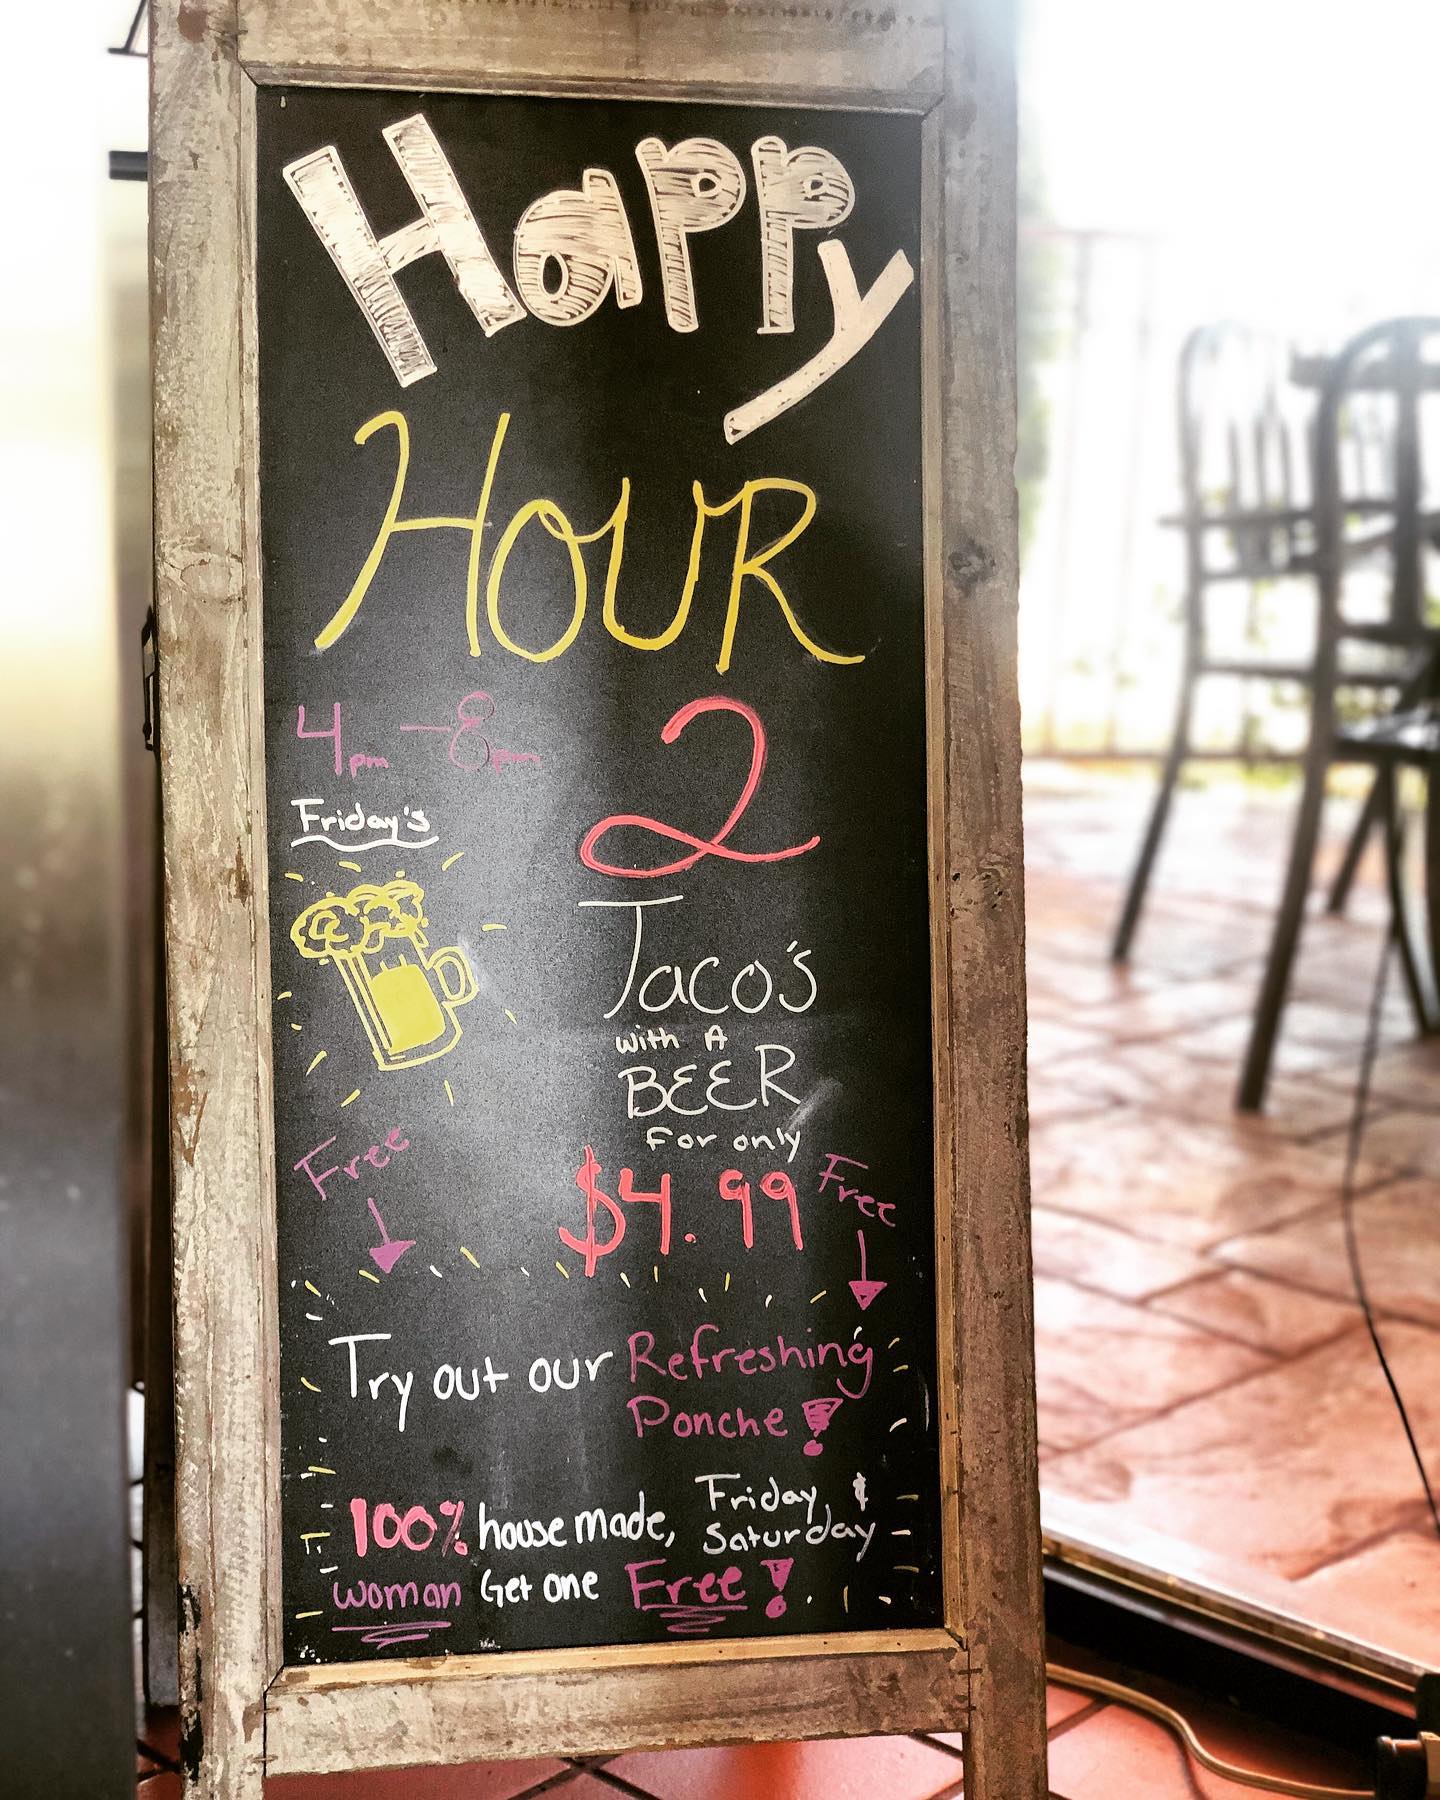 Happy
HOUR
4pm - 8pm
Friday's
2
Taco's
with A
BEER
For only
$4.99
Free
Free
Try out our Refreshing
Ponche!
100% house made, Friday, &
Saturday
woman Get one Free!.